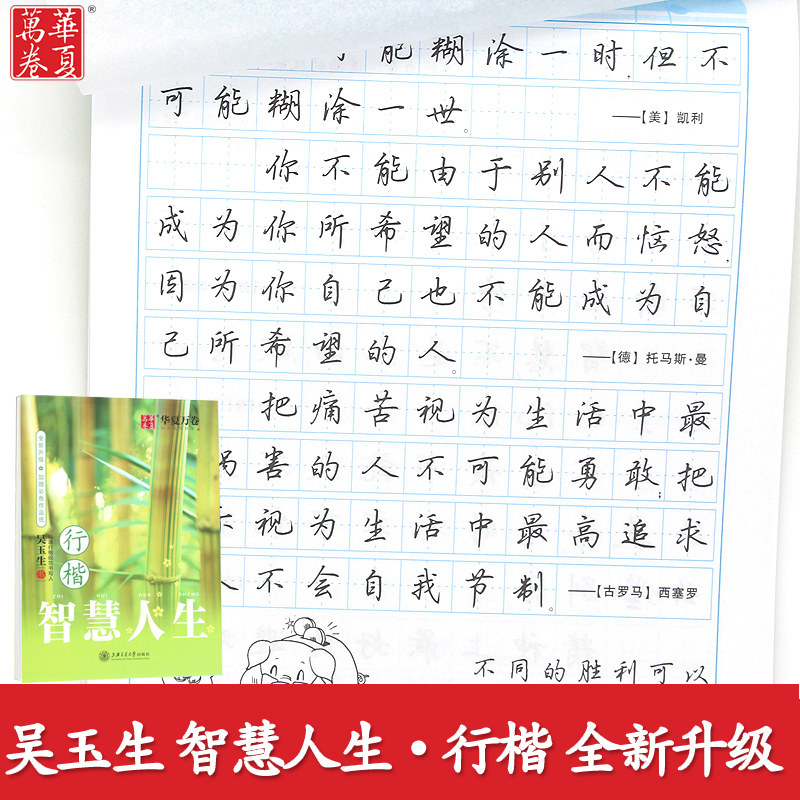 華夏
萬卷
®
能糊涂一时,但不
可能糊涂一世。
——【美】凯利
你不能由于别人不能
成为你所希望的人而恼怒,
因为你自己也不能成为自
己所希望的人。
——【德】托马斯·曼
把痛苦视为生活中最
祸害的人不可能勇敢;把
视为生活中最高追求
人不会自我节制。
——【古罗马】西塞罗
不同的胜利可以
华夏万卷
吴玉生 书
行楷
智慧人生
上海交通大学出版社
吴玉生 智慧人生·行楷 全新升级